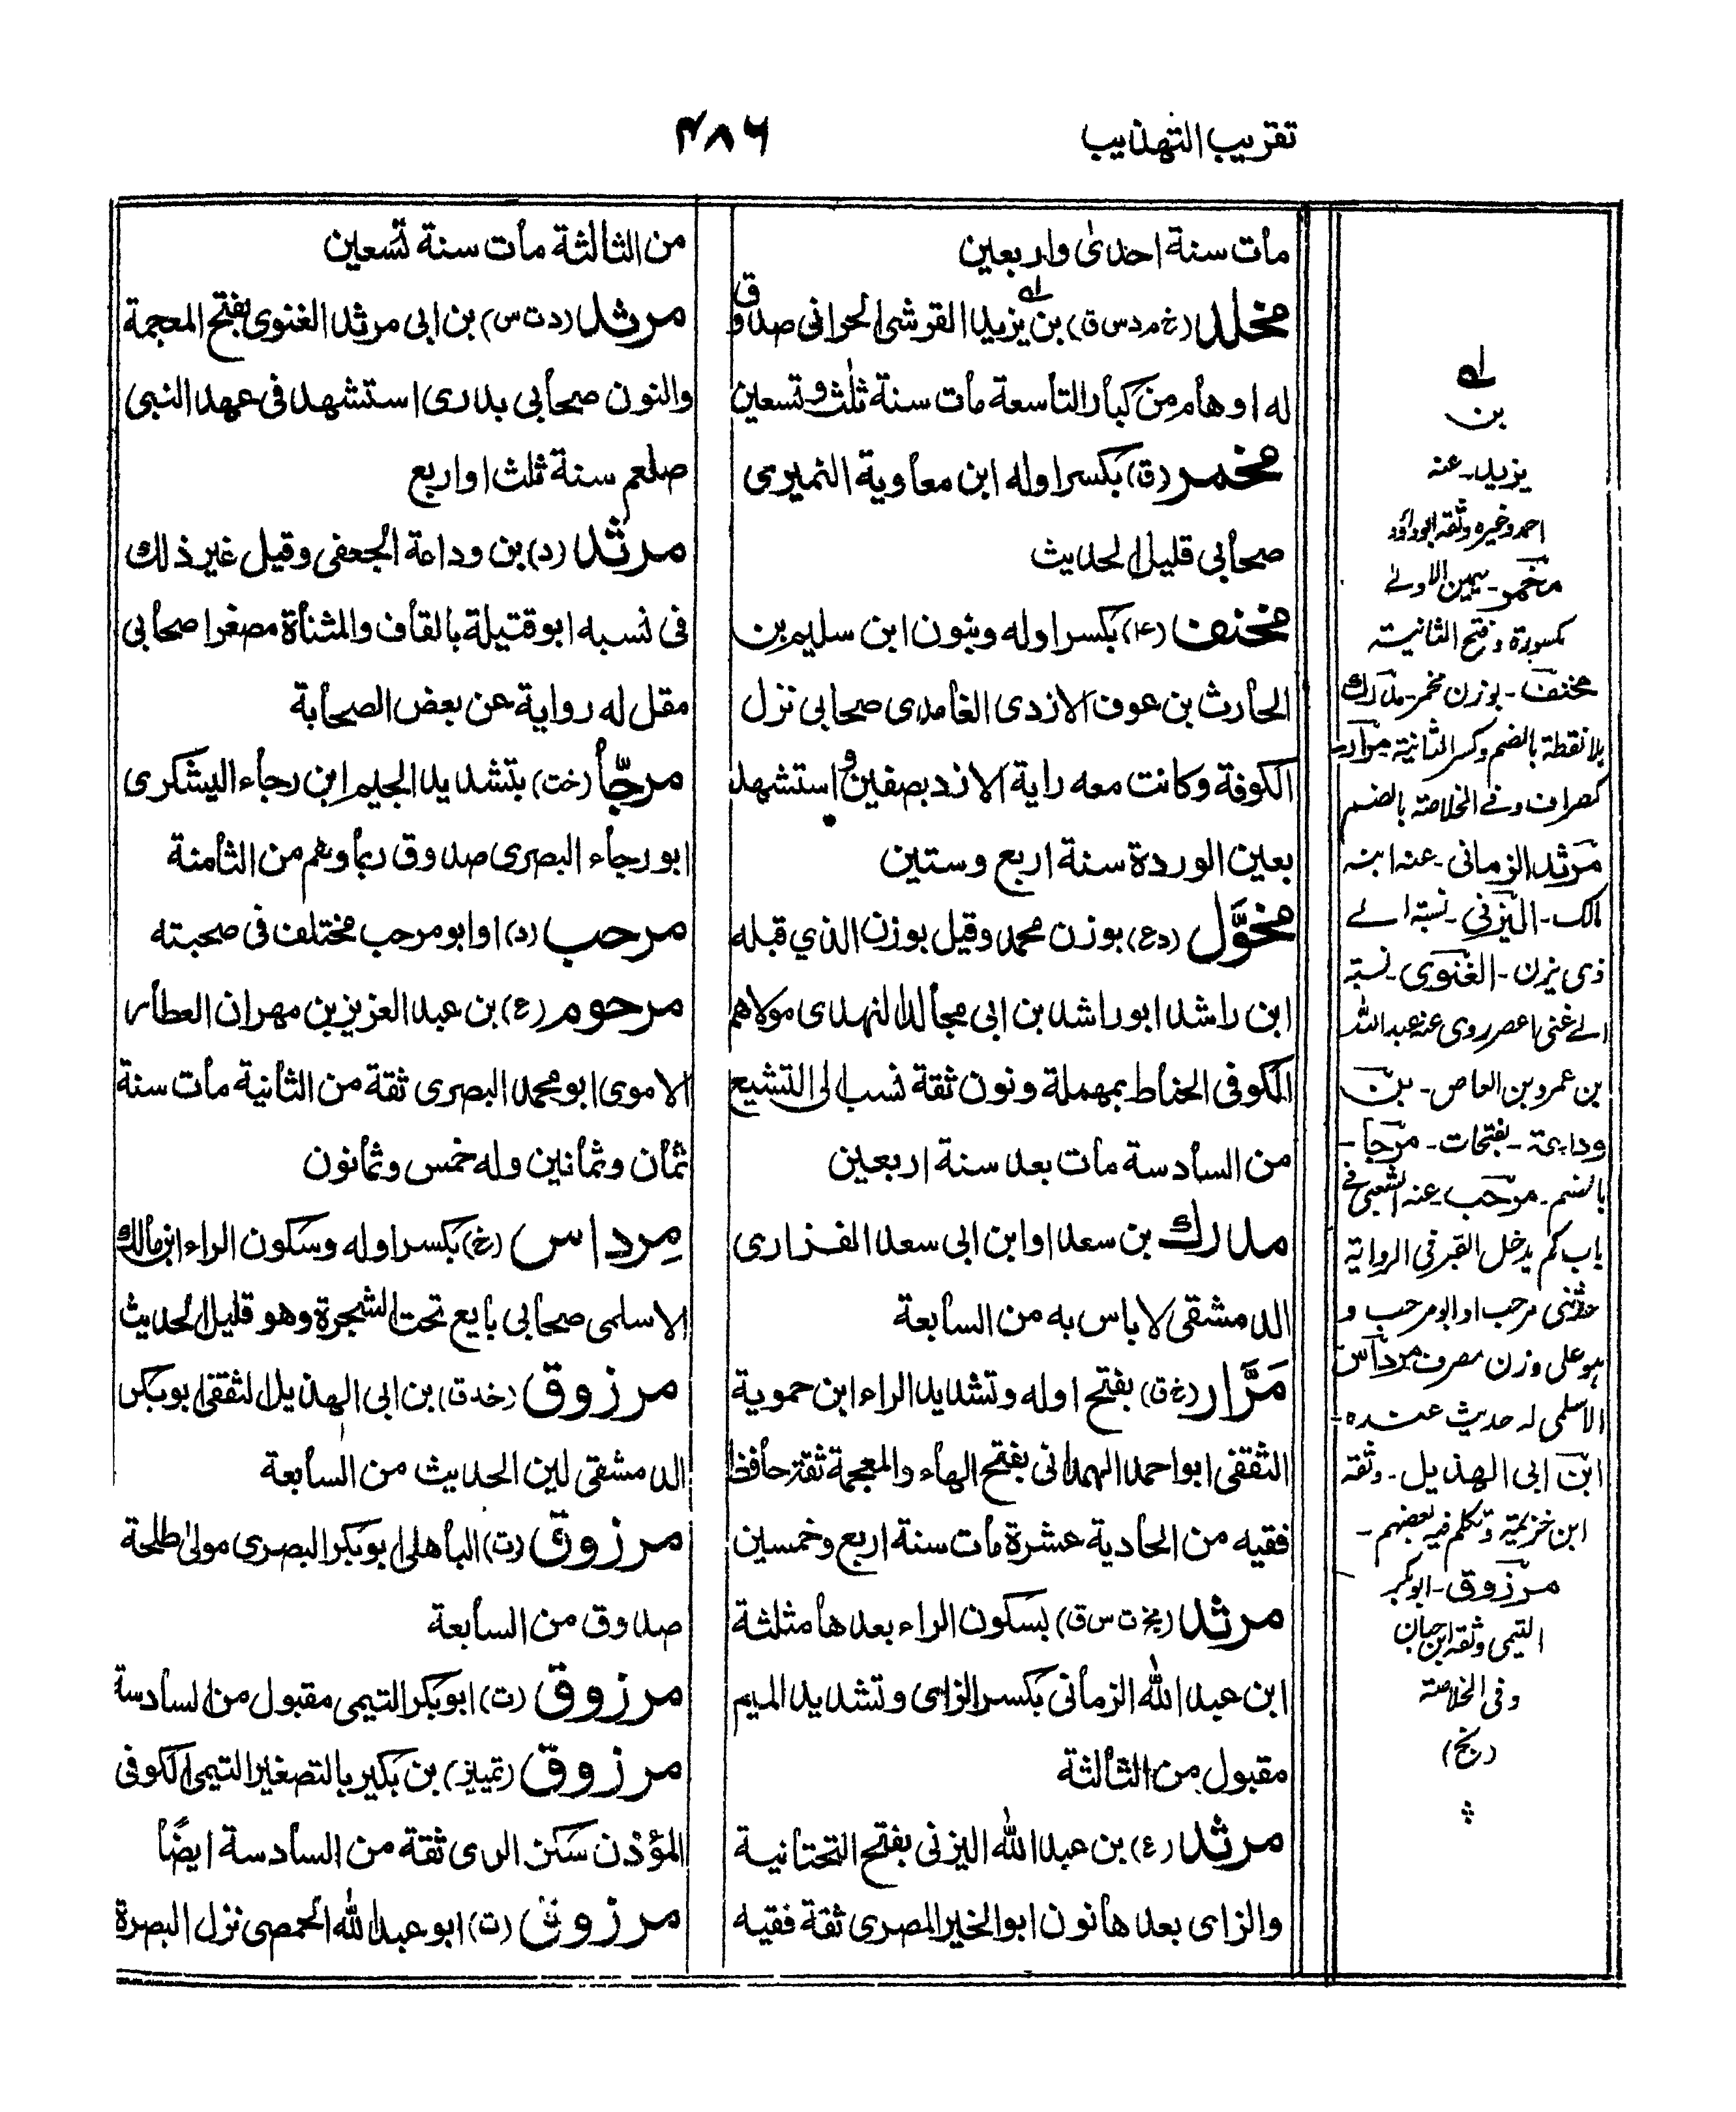 تقريب التهذيب
۴۸۶
مات سنة احدى واربعين
مخلد (خ م د س ق) بن يزيد القرشى الحرانى صدوق
له اوهام من كبار التاسعة مات سنة ثلث وتسعين
مخمر (ق) بكسر اوله ابن معاوية النميرى
صحابى قليل الحديث
مخنف (عا) بكسر اوله وبنون ابن سليم بن
الحارث بن عوف الازدى الغامدى صحابى نزل
الكوفة وكانت معه راية الازد بصفين و استشهد
بعين الوردة سنة اربع وستين
مخوَّل (دع) بوزن محمد وقيل بوزن الذي قبله
ابن راشد ابو راشد بن ابى مجالد النهدى مولاهم
الكوفى الحناط بمهملة ونون ثقة نسب الى التشيع
من السادسة مات بعد سنة اربعين
مدرك بن سعد او ابن ابى سعد الفزارى
الدمشقى لا باس به من السابعة
مَرَّار (خ ق) بفتح اوله وتشديد الراء ابن حموية
الثقفى ابو احمد الهمدانى بفتح الهاء والمعجمة ثقة حافظ
فقيه من الحادية عشرة مات سنة اربع وخمسين
مرثد (بخ ت س ق) بسكون الراء بعدها مثلثة
ابن عبد الله الزمانى بكسر الزاى وتشديد الميم
مقبول من الثالثة
مرثد (ع) بن عبد الله اليزنى بفتح التحتانية
والزاى بعدها نون ابو الخير المصرى ثقة فقيه
من الثالثة مات سنة تسعين
مرثد (د ت س) بن ابى مرثد الغنوى بفتح المعجمة
والنون صحابى بدرى استشهد فى عهد النبى
صلعم سنة ثلث او اربع
مرثد (د) بن وداعة الجعفى وقيل غير ذلك
فى نسبه ابو قتيلة بالقاف والمثناة مصغرا صحابى
مقل له رواية عن بعض الصحابة
مرجّأ (خت) بتشديد الجيم ابن رجاء اليشكرى
ابو رجاء البصرى صدوق ربما وهم من الثامنة
مرحب (د) او ابو مرحب مختلف فى صحبته
مرحوم (ع) بن عبد العزيز بن مهران العطار
الاموى ابو محمد البصرى ثقة من الثانية مات سنة
ثمان وثمانين وله خمس وثمانون
مِرداس (خ) بكسر اوله وسكون الراء ابن مالك
الاسلمى صحابى بايع تحت الشجرة وهو قليل الحديث
مرزوق (خد ق) بن ابى الهذيل الثقفى ابو بكر
الدمشقى لين الحديث من السابعة
مرزوق (ت) الباهلى ابو بكر البصري مولى طلحة
صدوق من السابعة
مرزوق (ت) ابو بكر التيمى مقبول من السادسة
مرزوق (تمييز) بن بكير بالتصغير التيمى الكوفى
المؤذن سكن الرى ثقة من السادسة ايضًا
مرزوق (ت) ابو عبد الله الحمصى نزل البصرة
بن
يزيد - عنه
احمد وغيره وثقه ابو داؤد
مخمر - بميمين الاولى
مكسورة وفتح الثانية
مخنف - بوزن مخمر - مدرك
بلا نقطة بالضم وكسر الثانية مرار
كصراف وفى الخلاصة بالضم
مرثد الزمانى - عنه ابنه
مالك - اليزنى - نسبته الى
ذى يزن - الغنوى - نسبة
الى غنى بن اعصر روى عنه عبد الله
بن عمرو بن العاص - بن
وداعة - بفتحات - مرجا -
بالضم - مرحب - عنه الشعبى فى
باب كم يدخل القبر فى الرواية
حدثنى مرحب او ابو مرحب و
هو على وزن مصرف مرداس
الاسلمى له حديث عنده -
ابن ابى الهذيل - وثقه
ابن خزيمة وتكلم فيه بعضهم -
مرزوق - ابو بكر
التيمى وثقه ابن حبان
وفى الخلاصة
(بخ)